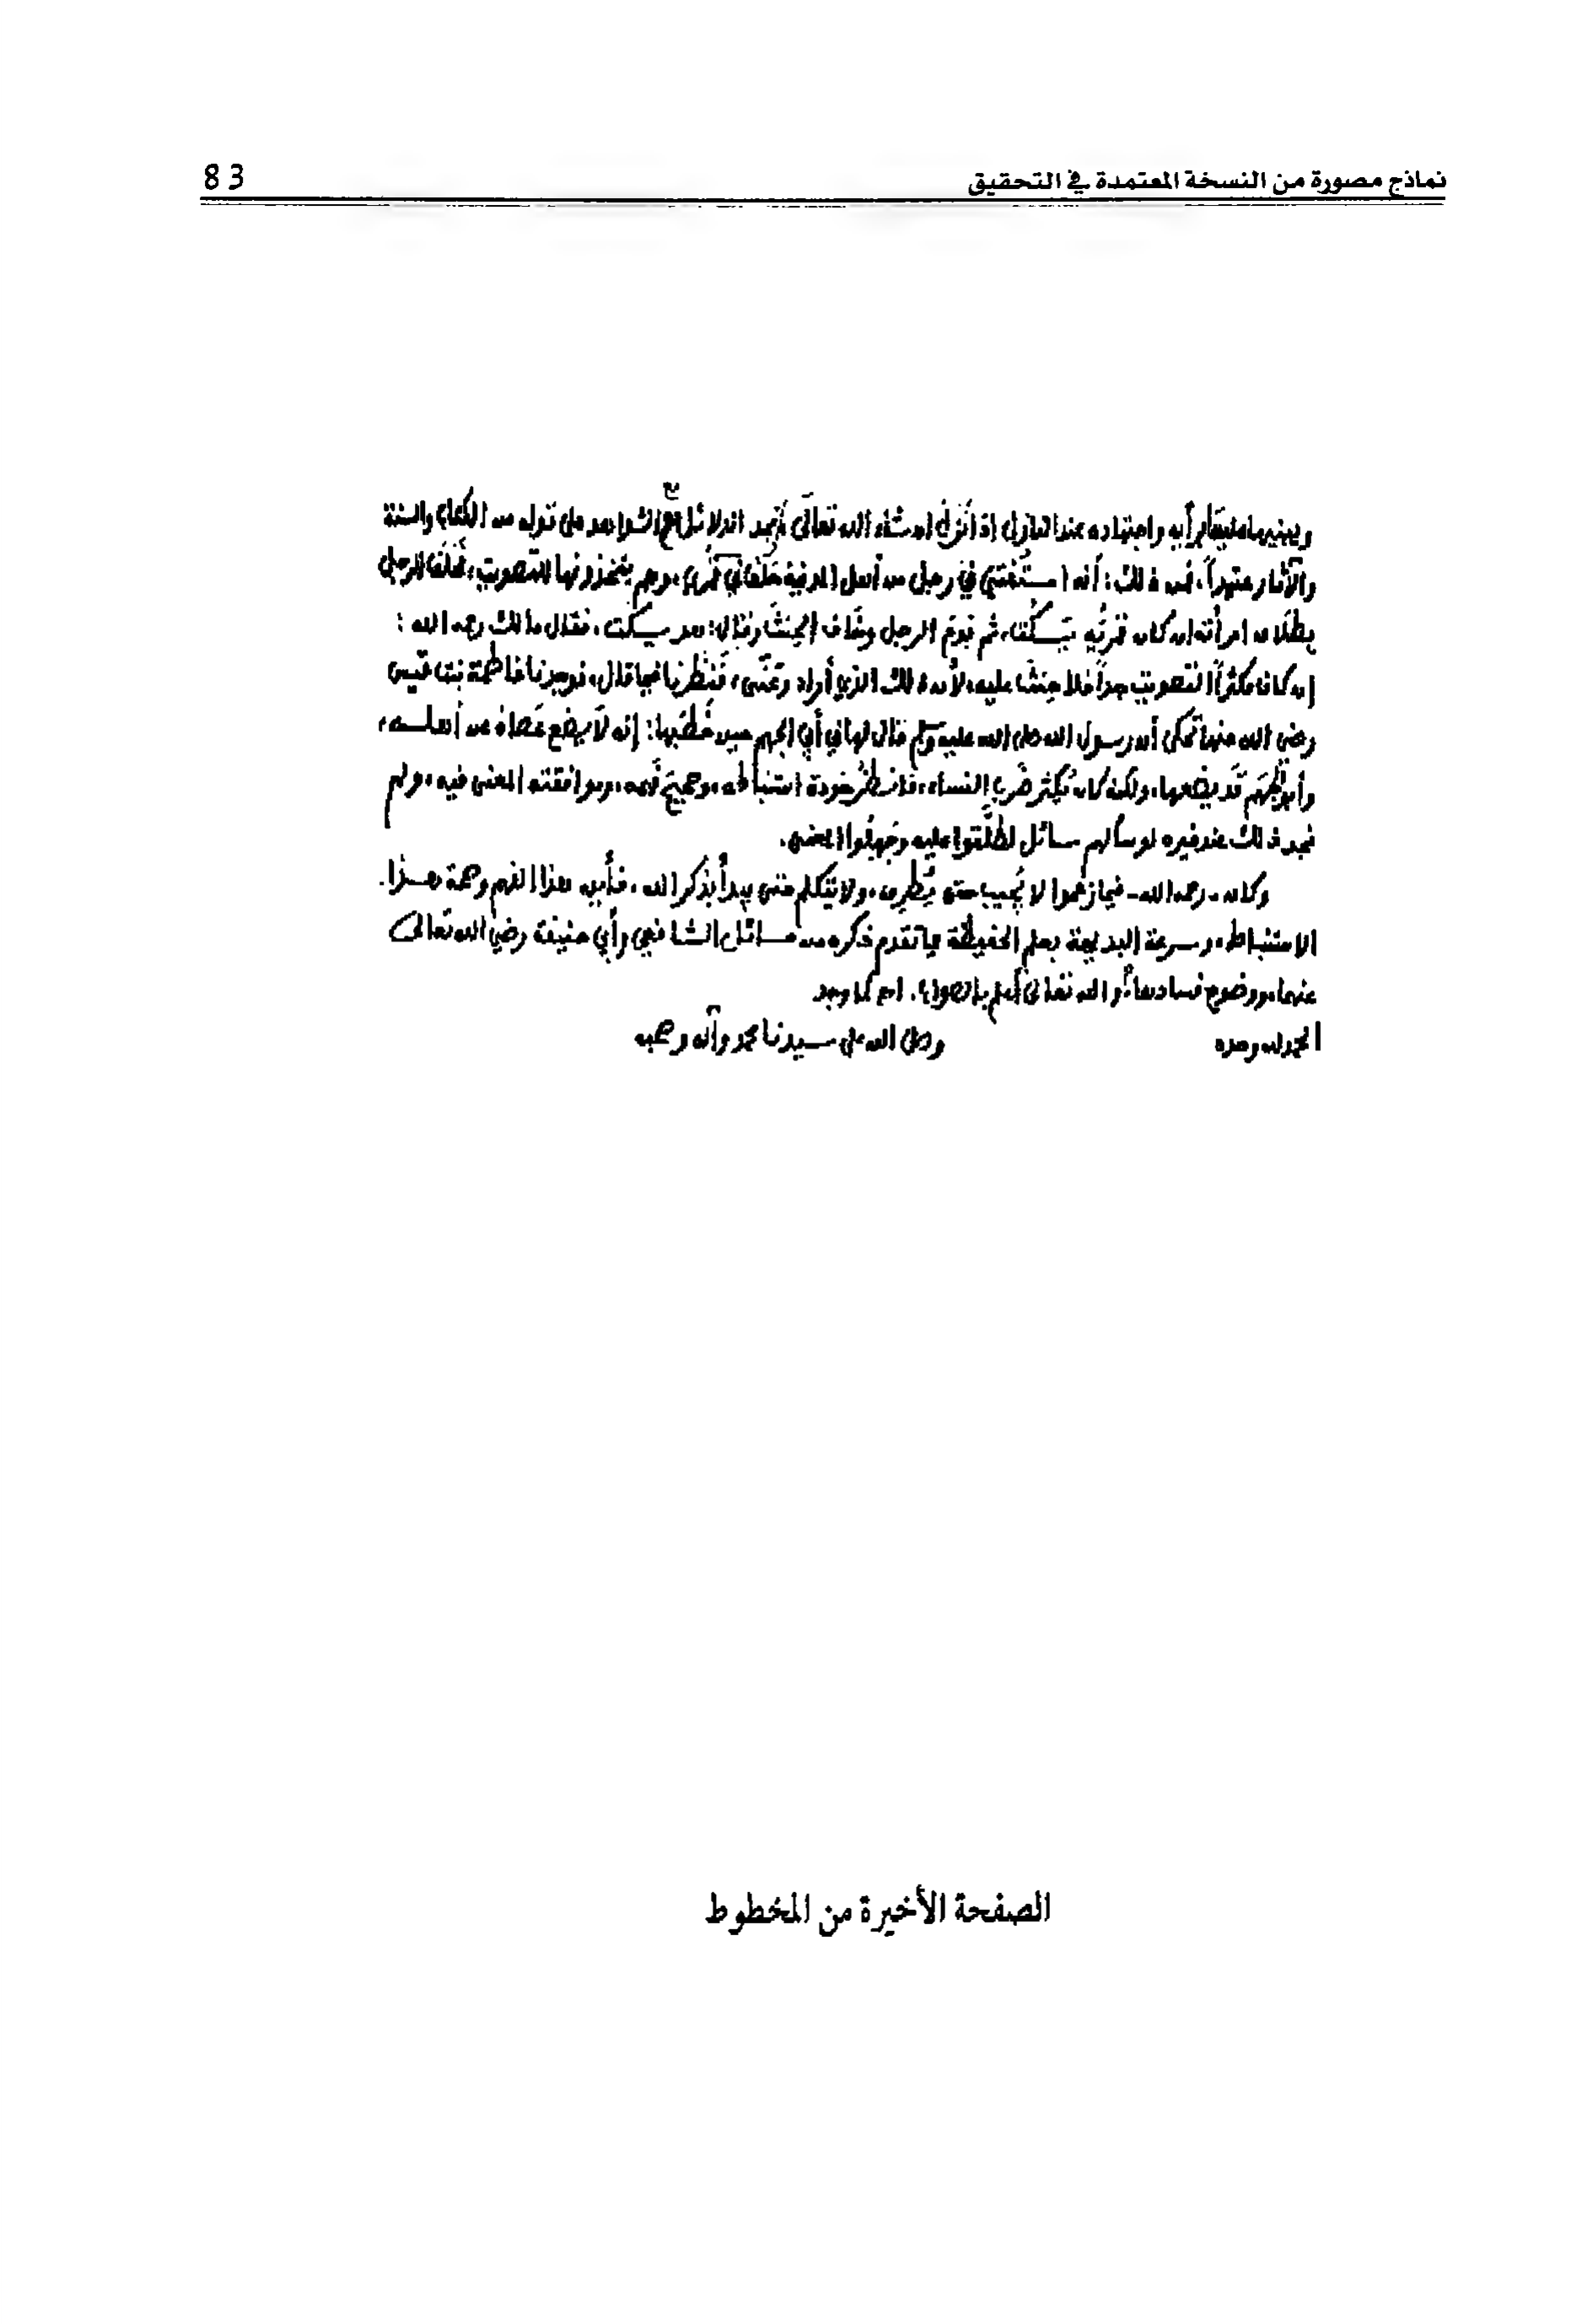 نماذج مصورة من النسخة المعتمدة في التحقيق
83
واجتهاده عند النوازل إذا نزلت إن شاء الله تعالى الدلائل الشواهد على قوله من الكتاب والسنة
والآثار مجتهداً، فمن ذلك: أنه استفتي في رجل من أهل المدينة حلف في قمري، وهم يتخذونها للتصويت، فحلف الرجل
بطلاق امرأته إن كان قمريه يسكت، ثم قدم الرجل وخاف الحنث وقال: هو يسكت، فقال مالك رحمه الله:
إن كان مكثراً التصويت جداً فلا حنث عليه، لأن ذلك الذي أراد وعنى، فنظرنا فيما قال، فوجدنا فاطمة بنت قيس
رضي الله عنها تحكي أن رسول الله صلى الله عليه وسلم قال لها في أبي الجهم حين خطبها: إنه لا يضع عصاه عن أهله،
وأبو الجهم قد يضعها، ولكنه كان يكثر ضرب النساء، فانظر جودة استنباطه، وصحيح فهمه، وموافقته المعنى فيه، ولم
نجد ذلك عند غيره لو سألهم سائل لطلقوا عليه وجهلوا المعنى.
وكان - رحمه الله - فيما زعموا لا يجيب حتى يطرق، ولا يتكلم حتى يبدأ بذكر الله، فأين هذا الفهم وصحة هذا
الاستنباط، وسرعة البديهة بعلم الحقيقة مما تقدم ذكره من مسائل الشافعي وأبي حنيفة رضي الله تعالى
عنهما، ووضوح فسادها، والله تعالى أعلم بالصواب. اهـ كما وجد
الحمد لله وحده وصلى الله على سيدنا محمد وآله وصحبه
الصفحة الأخيرة من المخطوط